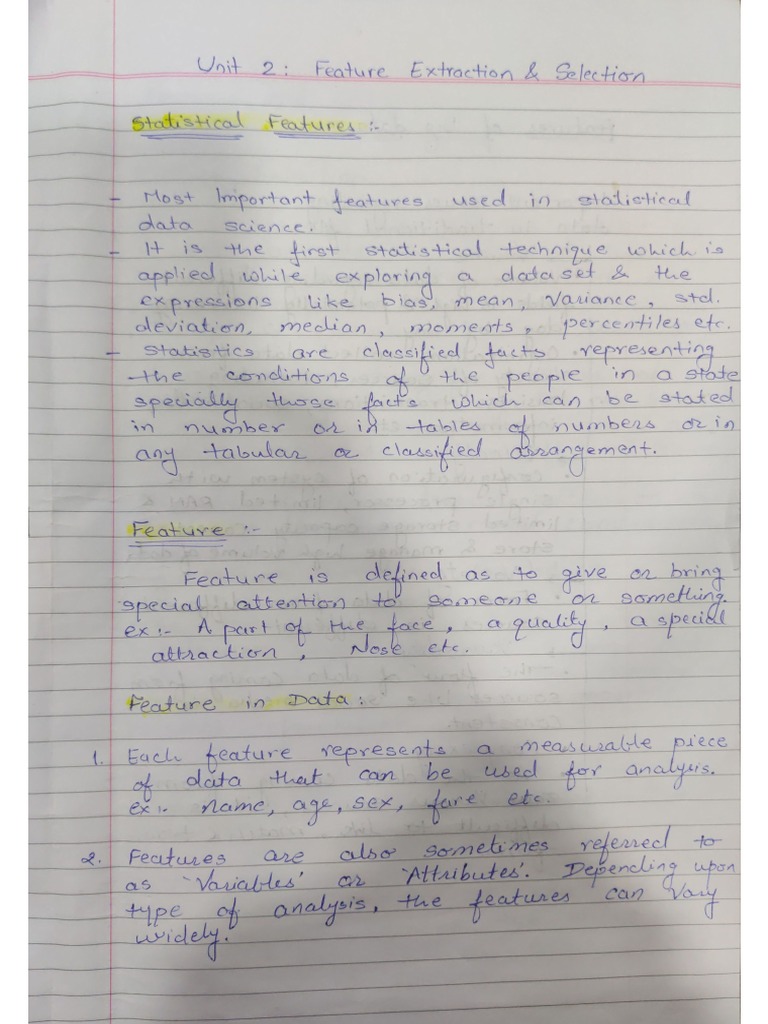 Unit 2: Feature Extraction & Selection
Statistical Features :-
- Most Important features used in statistical
data science.
- It is the first statistical technique which is
applied while exploring a dataset & the
expressions like bias, mean, variance, std.
deviation, median, moments, percentiles etc.
- Statistics are classified facts representing
the conditions of the people in a state
specially those facts which can be stated
in number or in tables of numbers or in
any tabular or classified arrangement.
Feature :-
Feature is defined as to give or bring
special attention to someone or something.
ex:- A part of the face, a quality, a special
attraction, Nose etc.
Feature in Data :
1. Each feature represents a measurable piece
of data that can be used for analysis.
ex:- name, age, sex, fare etc.
2. Features are also sometimes referred to
as 'Variables' or 'Attributes'. Depending upon
type of analysis, the features can vary
widely.